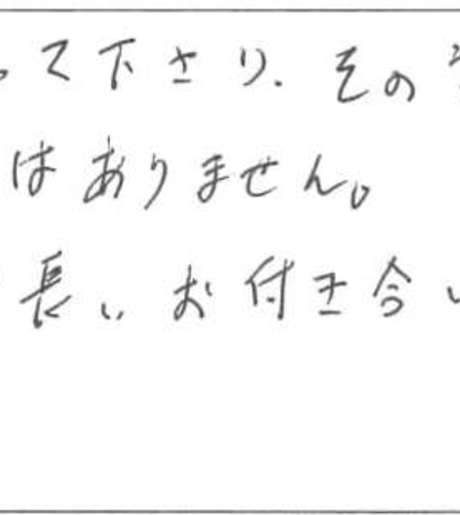 って下さり、その
はありません。
長いお付き合い